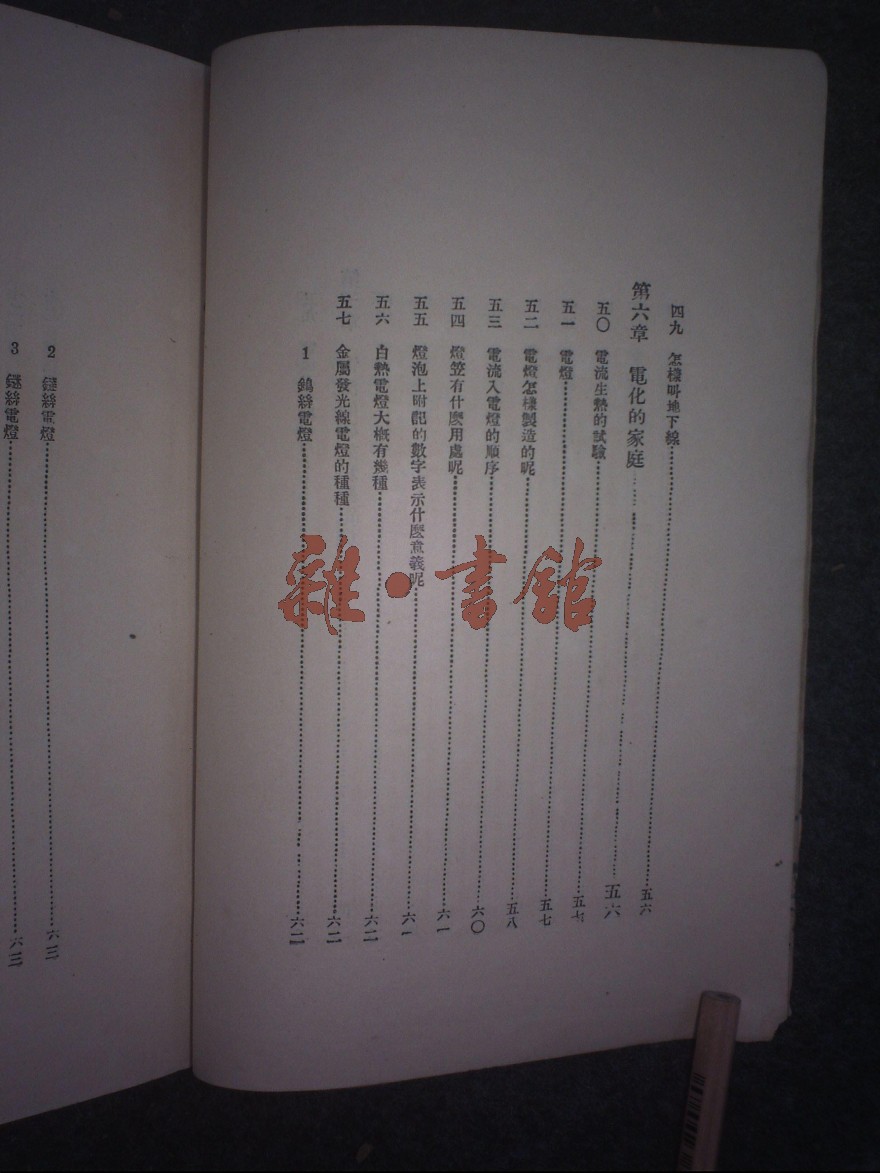 四九 怎樣叫地下線 五六
第六章 電化的家庭 五六
五〇 電流生熱的試驗 五七
五一 電燈 五七
五二 電燈怎樣製造的呢 五八
五三 電流入電燈的順序 六〇
五四 燈笠有什麼用處呢 六一
五五 燈泡上附記的數字表示什麼意義呢 六一
五六 白熱電燈大概有幾種 六二
五七 金屬發光線電燈的種種 六二
1 鎢絲電燈 六二
2 絲電燈 六三
3 絲電燈 六三
雜·書館